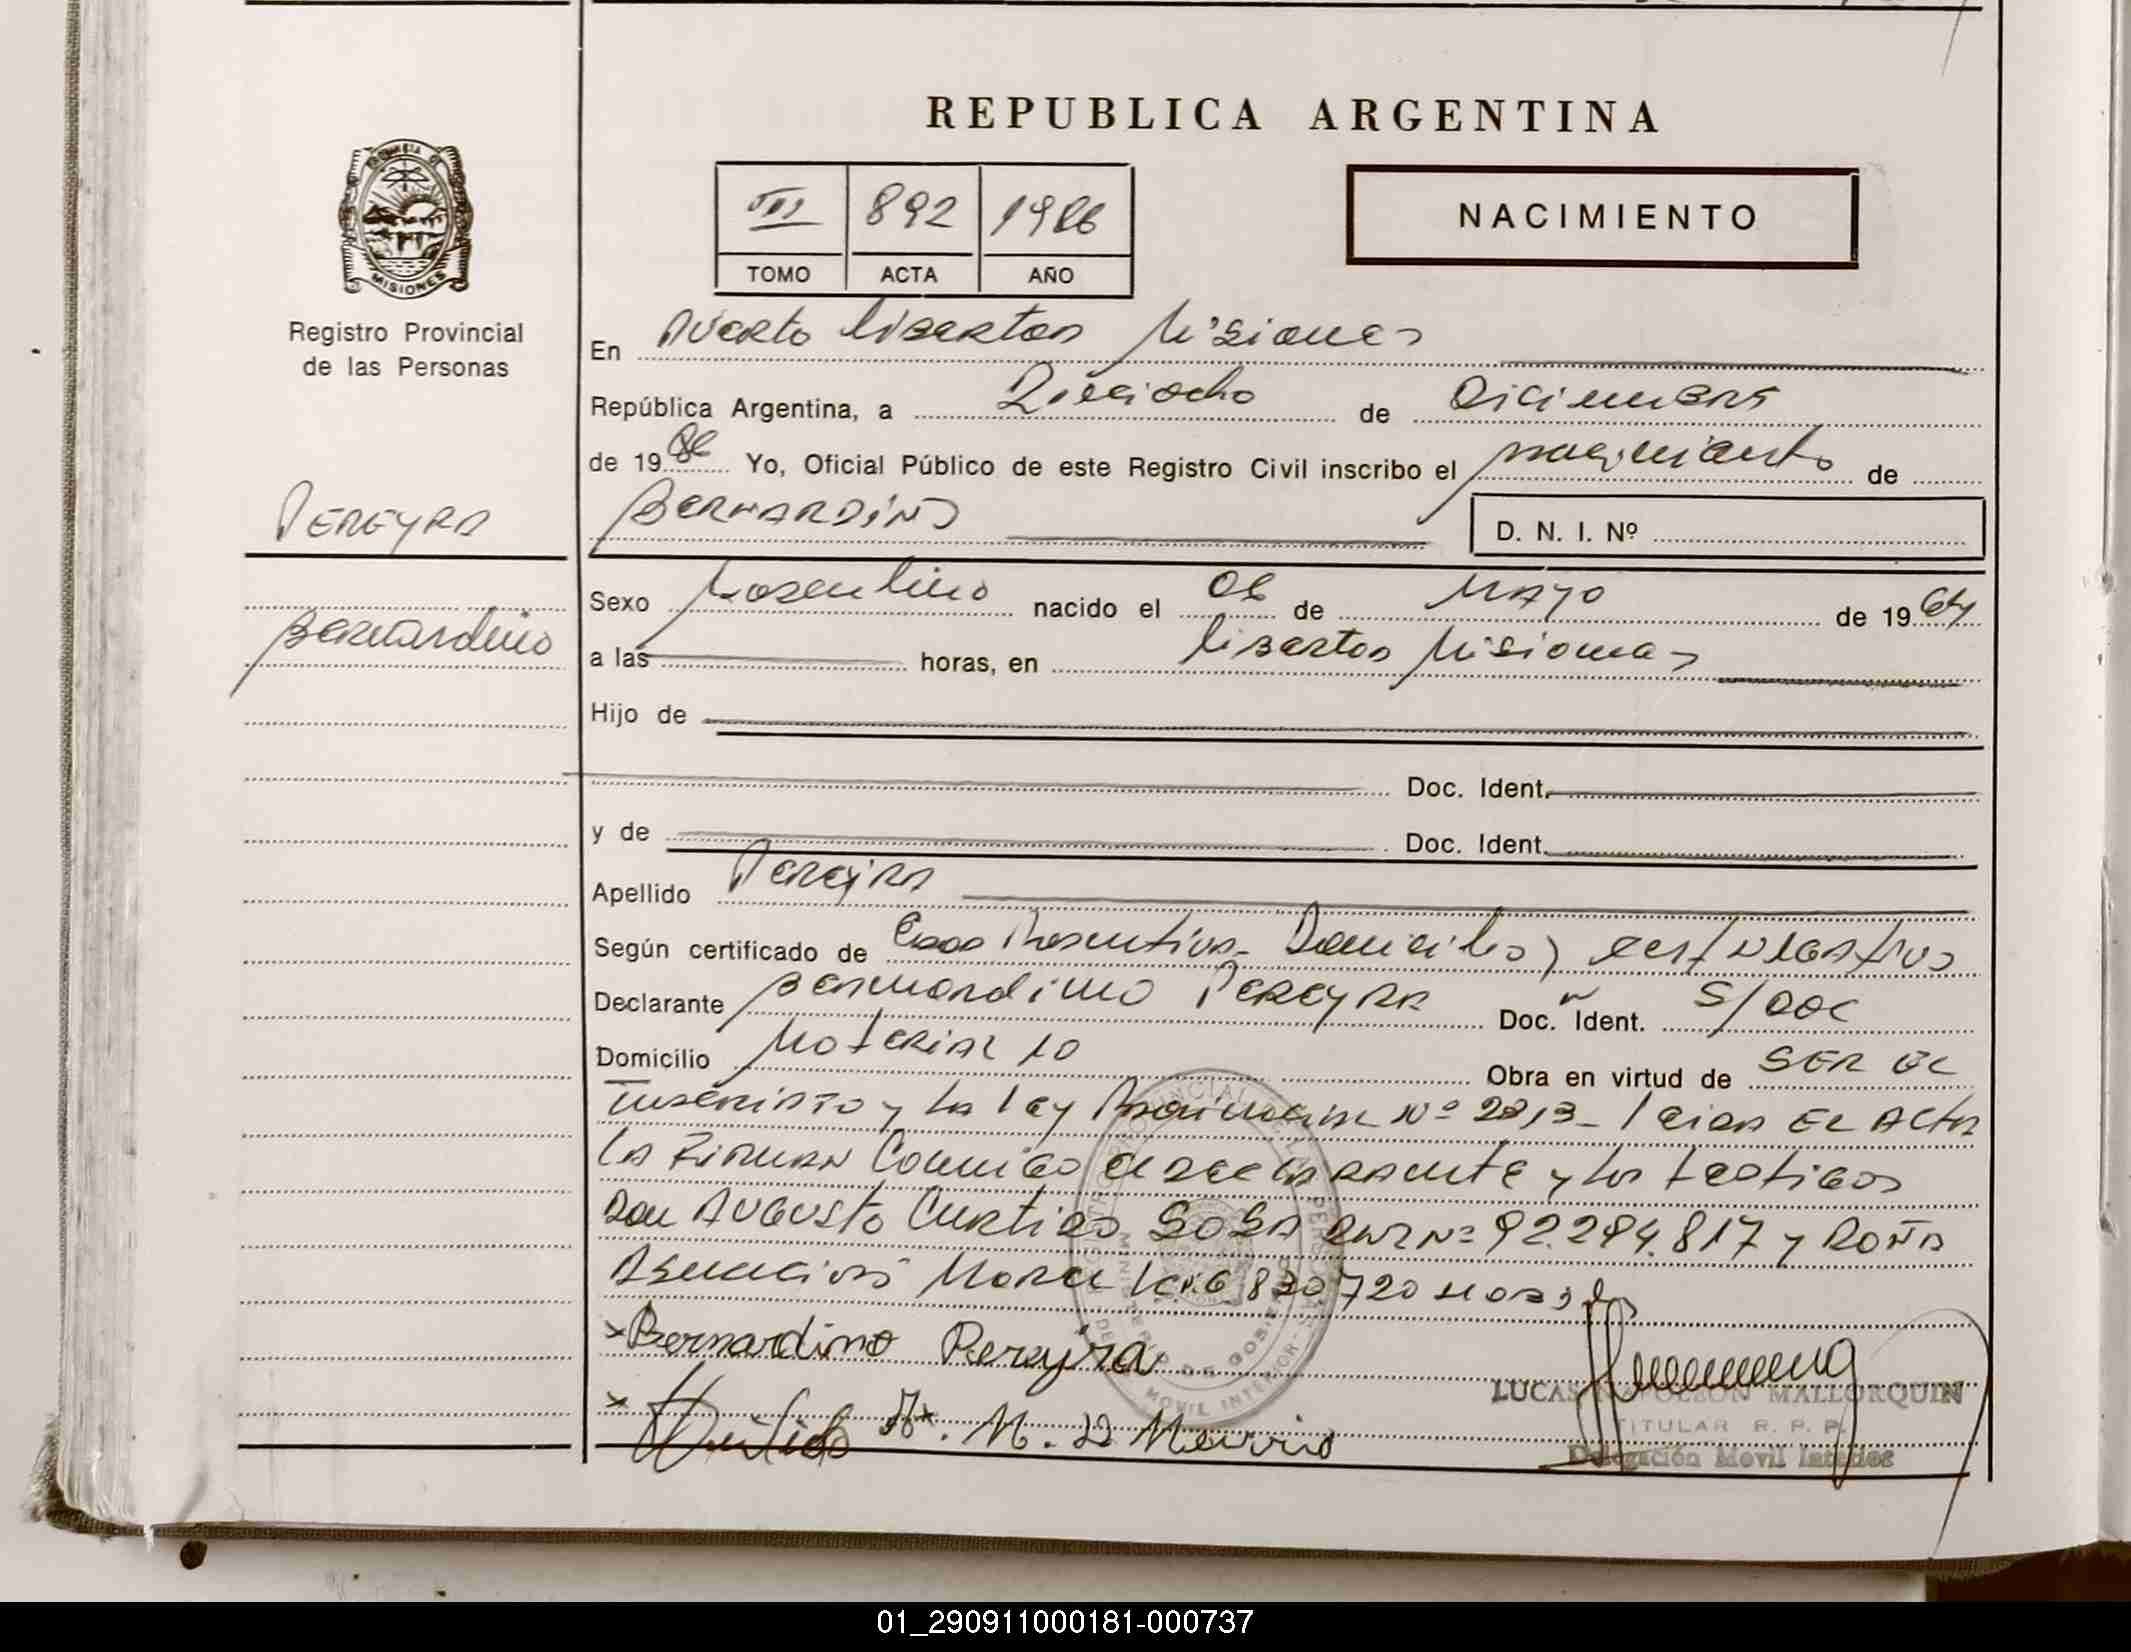 REPUBLICA ARGENTINA
PROVINCIA DE MISIONES
Registro Provincial
de las Personas
III 892 1986
TOMO ACTA AÑO
NACIMIENTO
En Puerto Libertad Misiones
República Argentina, a Dieciocho de Diciembre
de 1986 Yo, Oficial Público de este Registro Civil inscribo el nacimiento de
PEREYRA
BERNARDINO
D. N. I. Nº
Bernardino
Sexo Masculino nacido el 06 de Mayo de 1964
a las horas, en Libertad Misiones
Hijo de
Doc. Ident.
y de Doc. Ident.
Apellido Pereyra
Según certificado de Edad Presuntiva - Domicilio y Negativo
Declarante Bernardino Pereyra Doc. Ident. S/DOC
Domicilio Material 10 Obra en virtud de SER EL
Inscripto y la ley Provincial Nº 2213 - leida EL Acta
La Firman Conmigo el declarante y los testigos
Don AUGUSTO SOSA DNI Nº 92.294.817 y DOÑA
Asuncion
x Bernardino Pereyra
x
LUCAS NAPOLEON MALLORQUIN
TITULAR R. P. P.
Delegación Movil Interior
01_290911000181-000737